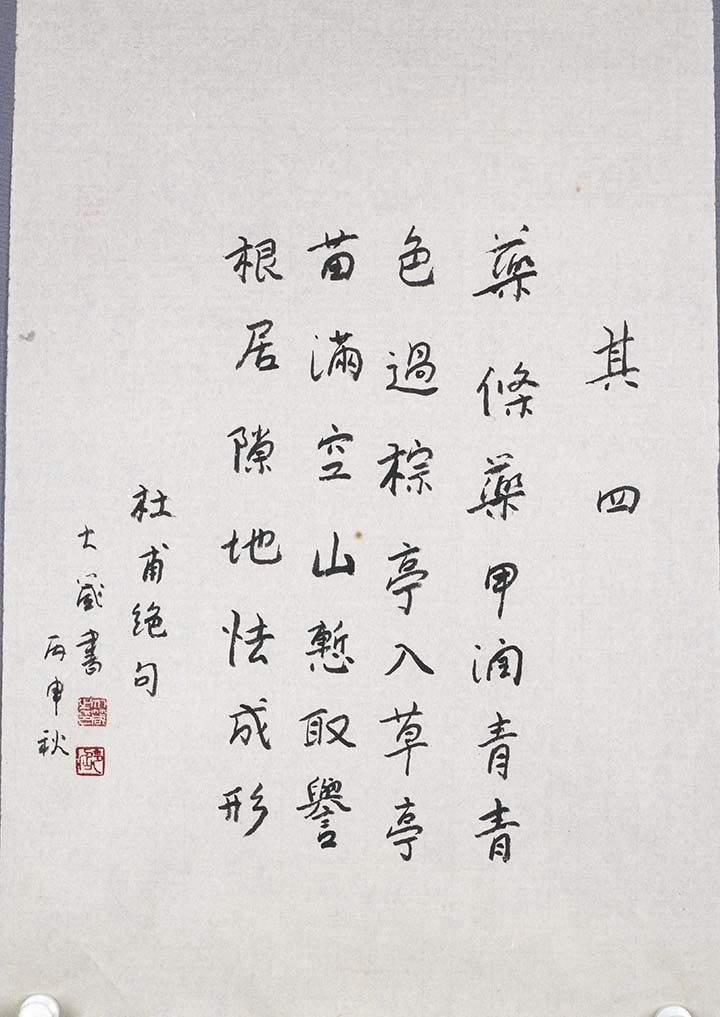 其四
藥條藥甲潤青青
色過棕亭入草亭
苗滿空山慙取譽
根居隙地怯成形
杜甫絶句
大箴書
丙申秋